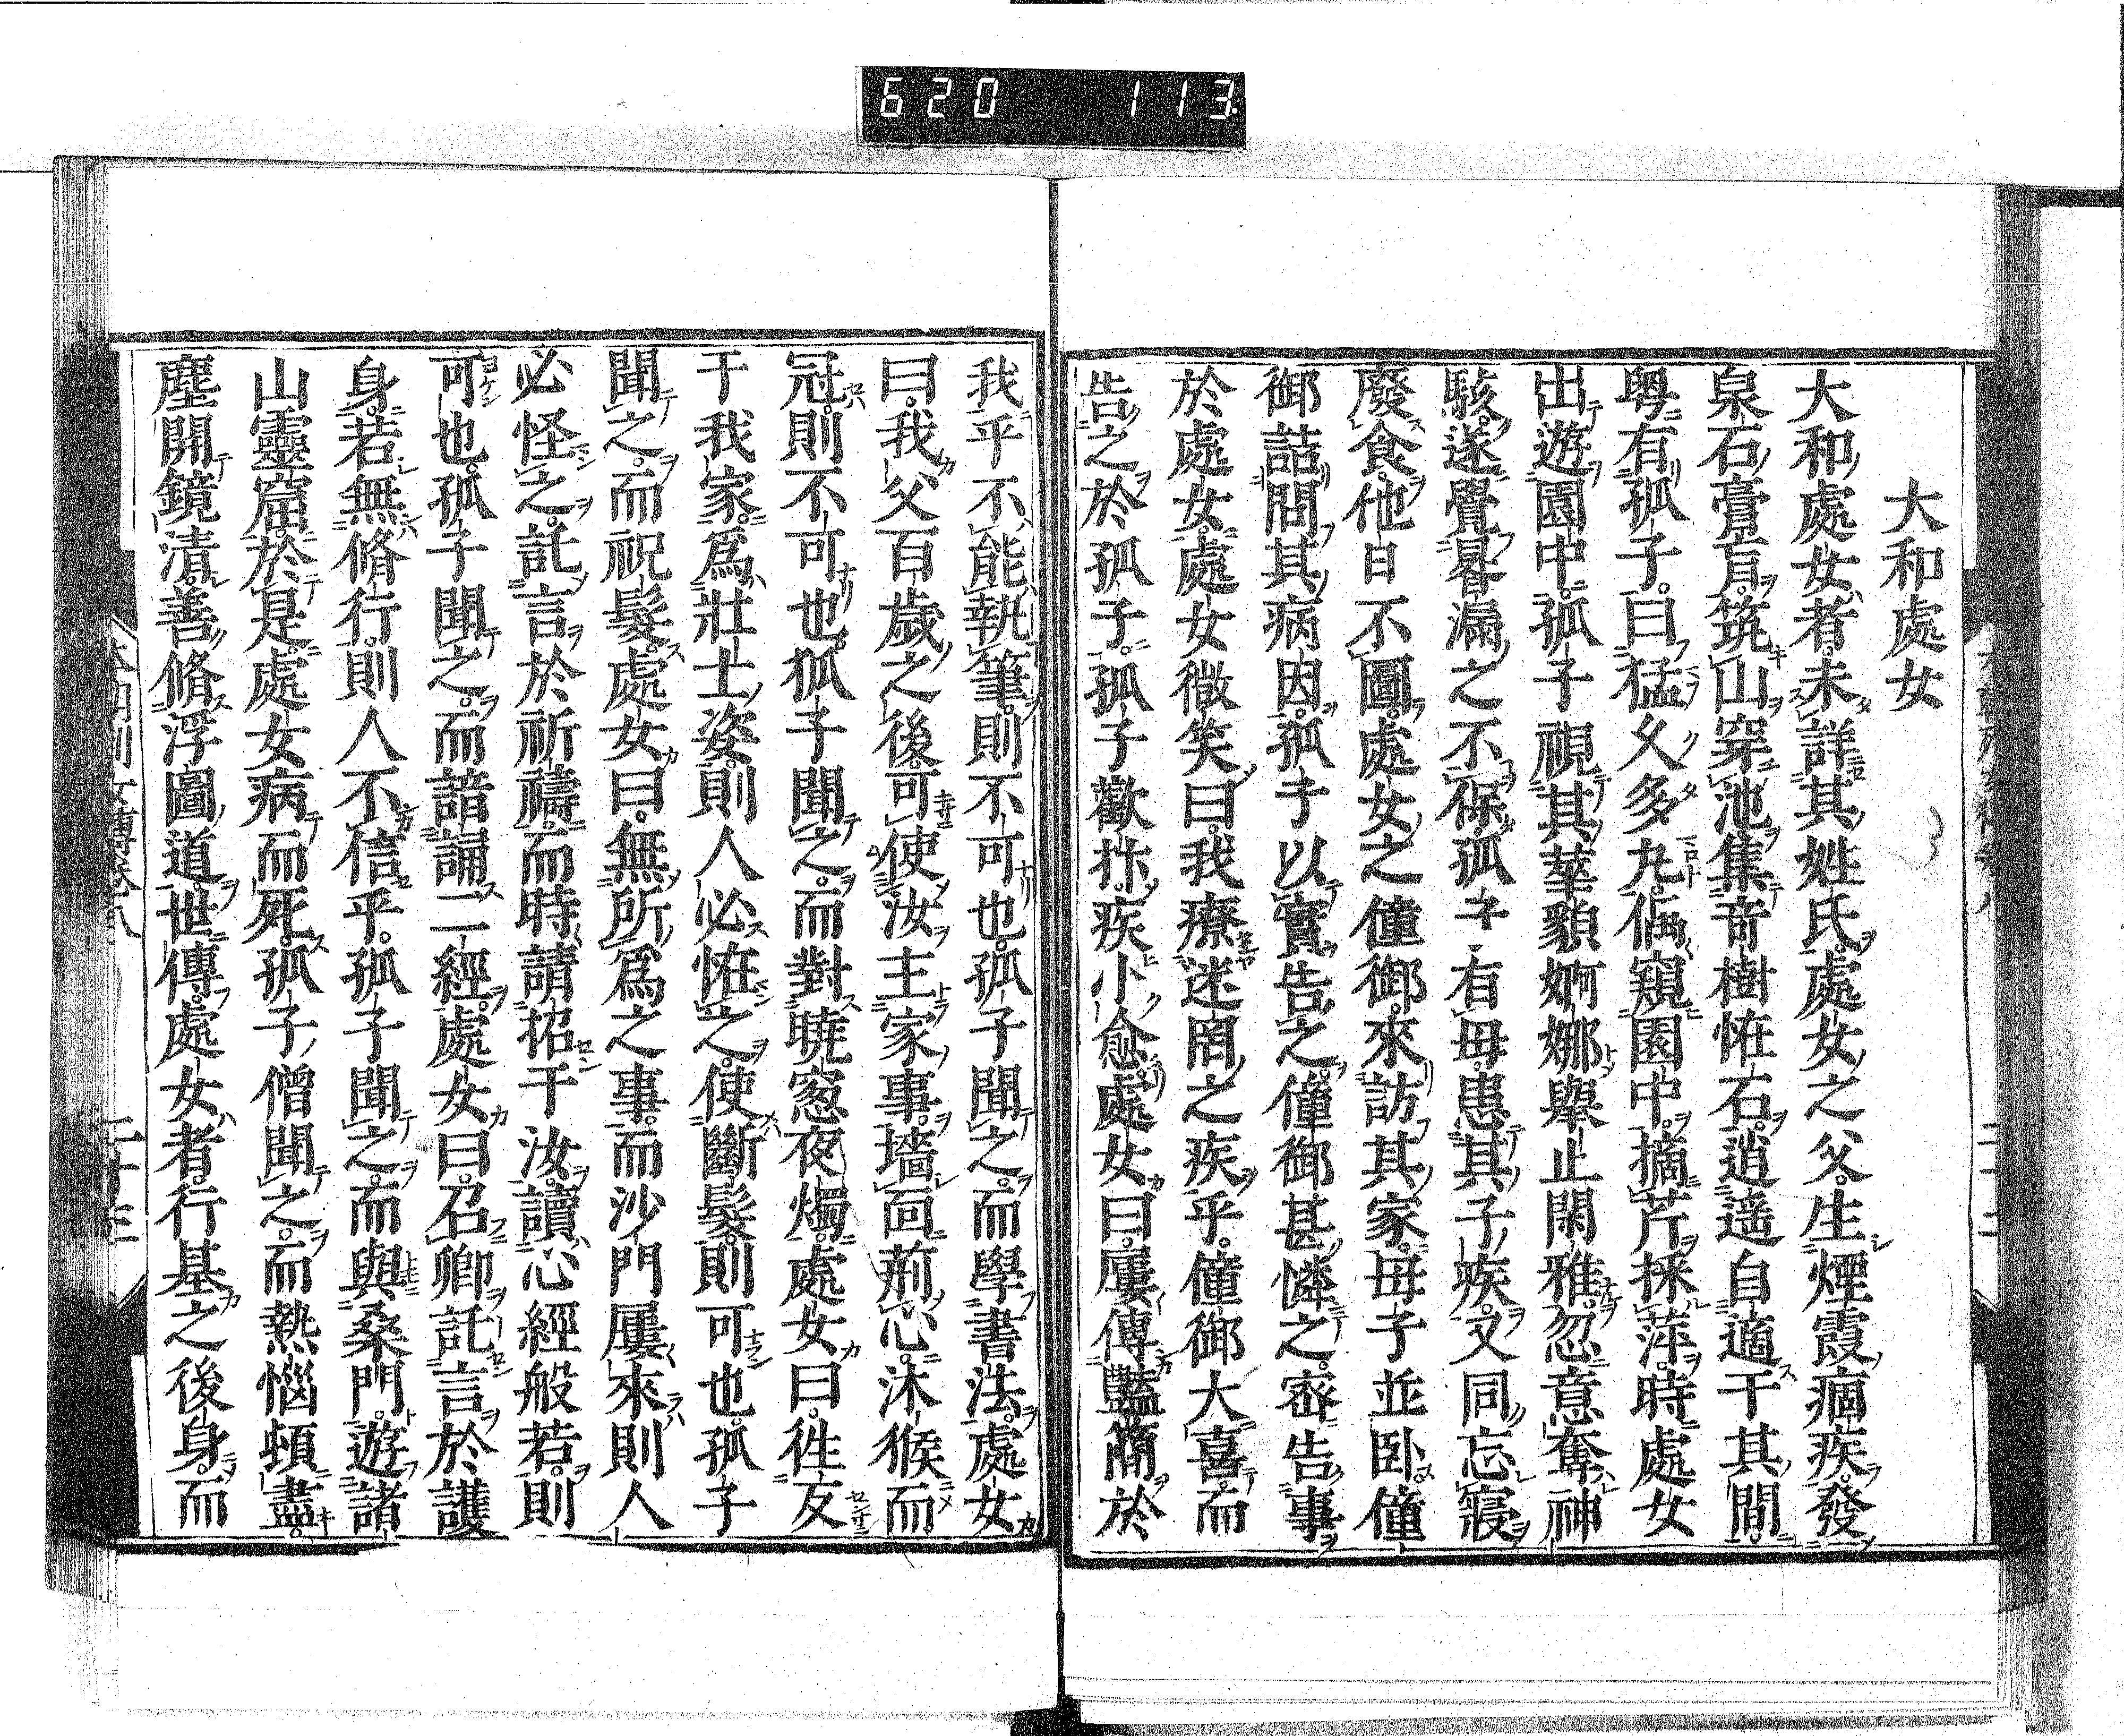 620 113
大和處女
大和處女者未詳其姓氏處女之父生煙霞痼疾發
泉石膏肓筑山穿池集奇樹恠石逍遥自適于其間
粤有孤子曰猛夂多丸偭窺園中摘芹採萍時處女
出遊園中孤子視其華貌婀娜舉止閑雅忽意奪神
駭遂覺晷漏之不保孤子有母患其子疾又同忘寢
廢食他日不圖處女之僮御來訪其家母子並卧僮
御詰問其病因孤子以實告之僮御甚憐之密告事
於處女處女微笑曰我療迷罔之疾乎僮御大喜而
告之於孤子孤子歡抃疾小愈處女曰屢傳豔簡於
我乎不能執筆則不可也孤子聞之而學書法處女
曰我父百歳之後可使汝主家事墻面荊心沐猴而
冠則不可也狐子聞之而對暁窓夜燭處女曰徃友
于我家爲壯士姿則人必恠之使斷髮則可也孤子
聞之而祝髮處女曰無所爲之事而沙門屢來則人
必怪之託言於祈禱而時請招于汝讀心經般若則
可也孤子聞之而諳誦二經處女曰召卿託言於護
身若無脩行則人不信乎孤子聞之而與桑門遊諸
山靈窟於是處女病而死孤子僧聞之而熱惱頓盡
塵開鏡清善脩浮圖道世傳處女者行基之後身而
本朝列女傳卷八 二十三